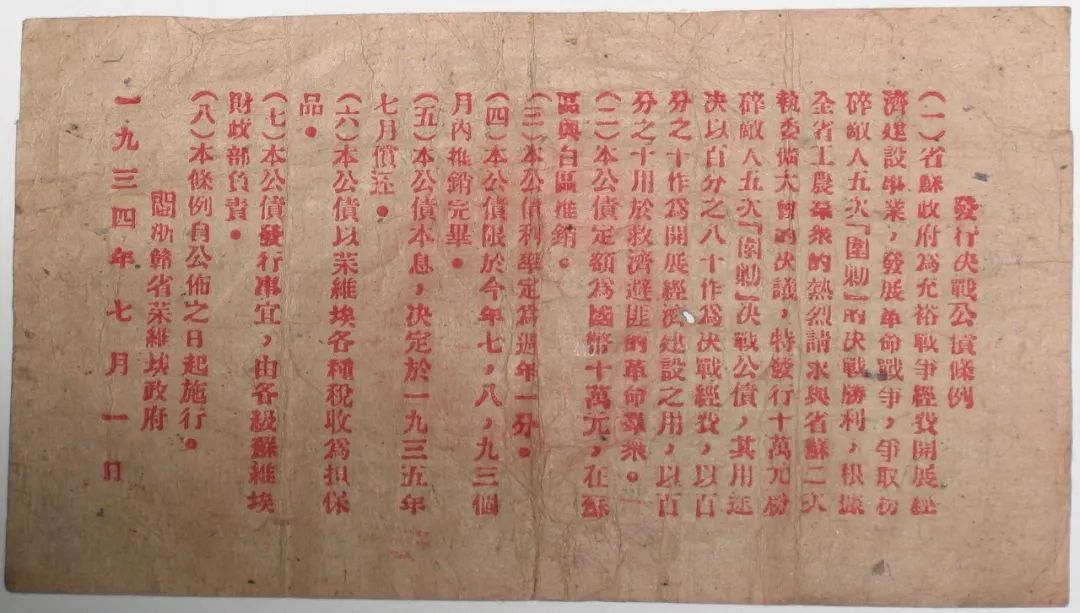 發行决戰公債條例
（一）省蘇政府爲充裕戰爭經費開展經
濟建設事業，發展革命戰爭，爭取粉
碎敵人五次『圍勦』的决戰勝利，根據
全省工農羣衆的熱烈請求與省蘇二次
執委擴大會的决議，特發行十萬元粉
碎敵人五次『圍勦』决戰公債，其用途
决以百分之八十作爲决戰經費，以百
分之十作爲開展經濟建設之用，以百
分之十用於救濟避匪的革命羣衆。
（二）本公債定額爲國幣十萬元，在蘇
區與白區推銷。
（三）本公債利率定爲週年一分。
（四）本公債限於今年七，八，九三個
月內推銷完畢。
（五）本公債本息，决定於一九三五年
七月償还。
（六）本公債以苏維埃各種稅收爲担保
品。
（七）本公債發行事宜，由各級蘇維埃
財政部負責。
（八）本條例自公佈之日起施行。
閩浙贛省苏維埃政府
一九三四年七月一日